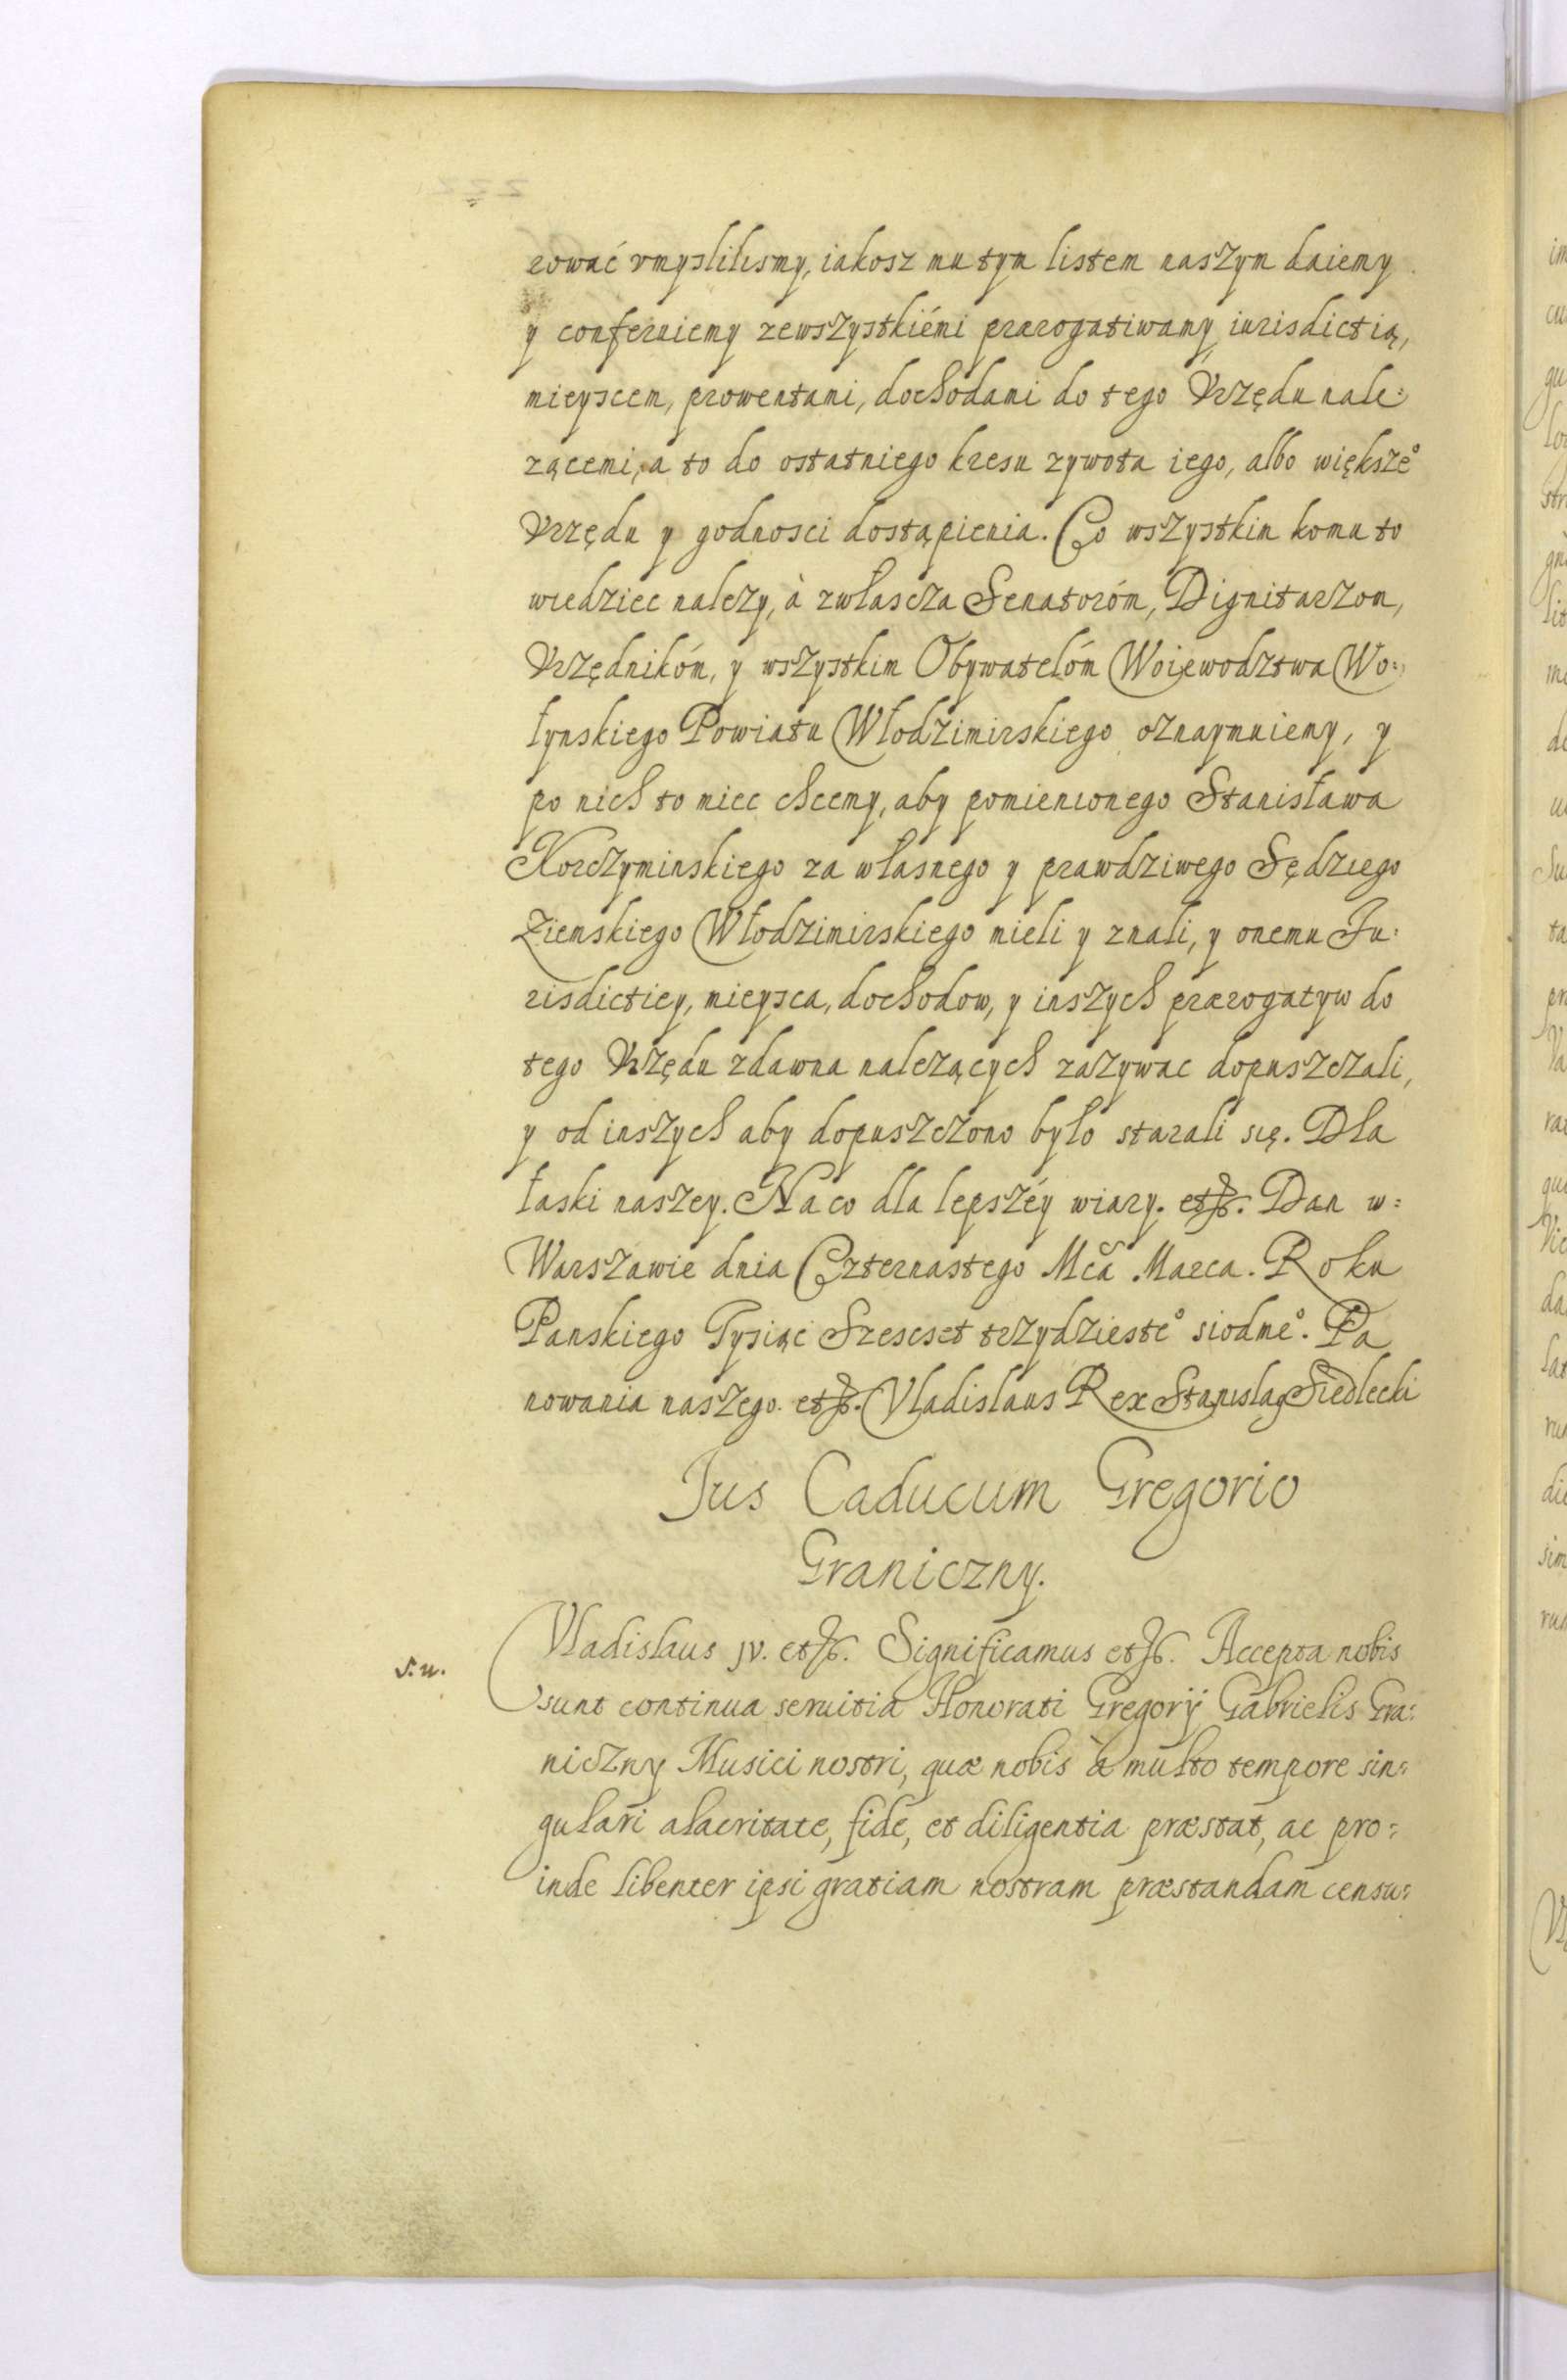 rować vmyslilismy, iakosz mu tym listem naszym daiemy
y conferuiemy zewszystkiémi prærogatiwamy iurisdictią,
mieyscem, prowentami, dochodami do tego Vrzędu nale:
zącemi, a to do ostatniego kresu zywota iego, albo większe°
Vrzędu y godnosci dostąpienia. Co wszystkim komu to
wiedziec nalezy, à zwłascza Senatoróm, Dignitarzom,
Vrzędnikóm, y wszystkim Obywatelóm Woiewodztwa Wo:
łynskiego Powiatu Włodzimirskiego oznaymuiemy, y
po nich to miec chcemy, aby pomienionego Stanisława
Korczyminskiego za własnego y prawdziwego Sędziego
Ziemskiego Włodzimirskiego mieli y znali, y onemu Ju:
risdictiey, mieysca, dochodow, y inszych prærogatyw do
tego Vrzędu zdawna nalezących zazywac dopuszczali,
y od inszych aby dopuszczono było starali się. Dla
łaski naszey. Na co dla lepszéy wiary. etc. Dan w:
Warszawie dnia Czternastego Mca Marca. Roku
Panskiego Tysiąc Szescset trzydzieste° siodme°. Pa
nowania naszego. etc. Vladislaus Rex Stanislag Siedlecki
Jus Caducum Gregorio
Graniczny.
Vladislaus JV. etc. Significamus etc. Accepta nobis
s. u.
sunt continua seruitia Honorati Gregorÿ Gabrielis Gra:
niczny Musici nostri, quæ nobis à multo tempore sin:
gulari alacritate, fide, et diligentia præstat, ac pro:
inde libenter ipsi gratiam nostram præstandam censu: